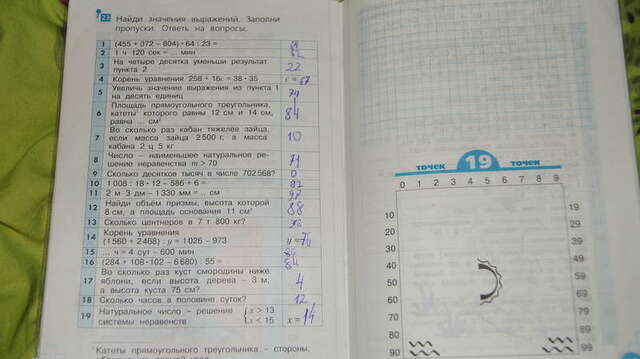 22 Найди значения выражений. Заполни
пропуски. Ответь на вопросы.
1 (455 + 372 – 804) • 64 : 23 =
2 1 ч 120 сек = ... мин
3 На четыре десятка уменьши результат
пункта 2 22
4 Корень уравнения 258 + 16c = 38 • 35 c = 67
5 Увеличь значение выражения из пункта 1
на десять единиц 74
6 Площадь прямоугольного треугольника,
катеты которого равны 12 см и 14 см,
равна ... см² 84
7 Во сколько раз кабан тяжелее зайца,
если масса зайца 2 500 г, а масса
кабана 2 ц 5 кг 10
8 Число – наименьшее натуральное ре-
шение неравенства m > 70 71
9 Сколько десятков тысяч в числе 702 568? 0
10 1 008 : 18 • 12 – 586 + 6 = 92
11 2 м 3 дм – 1 330 мм = .. см
12 Найди объём призмы, высота которой
8 см, а площадь основания 11 см² 88
13 Сколько центнеров в 7 т 800 кг? 78
14 Корень уравнения
(1 560 + 2 468) : y = 1 026 – 973 y = 76
15 ... ч = 4 сут – 600 мин
16 (284 + 108 • 102 – 6 680) : 55 =
17 Во сколько раз куст смородины ниже
яблони, если высота дерева – 3 м,
а высота куста 75 см? 4
18 Сколько часов в половине суток? 12
19 Натуральное число – решение x > 13
системы неравенств x < 15 x = 14
Катеты прямоугольного треугольника – стороны,
точек 19 точек
0 1 2 3 4 5 6 7 8 9
10 19
20 29
30 39
40 49
50 59
60 69
70 79
80 89
90 99